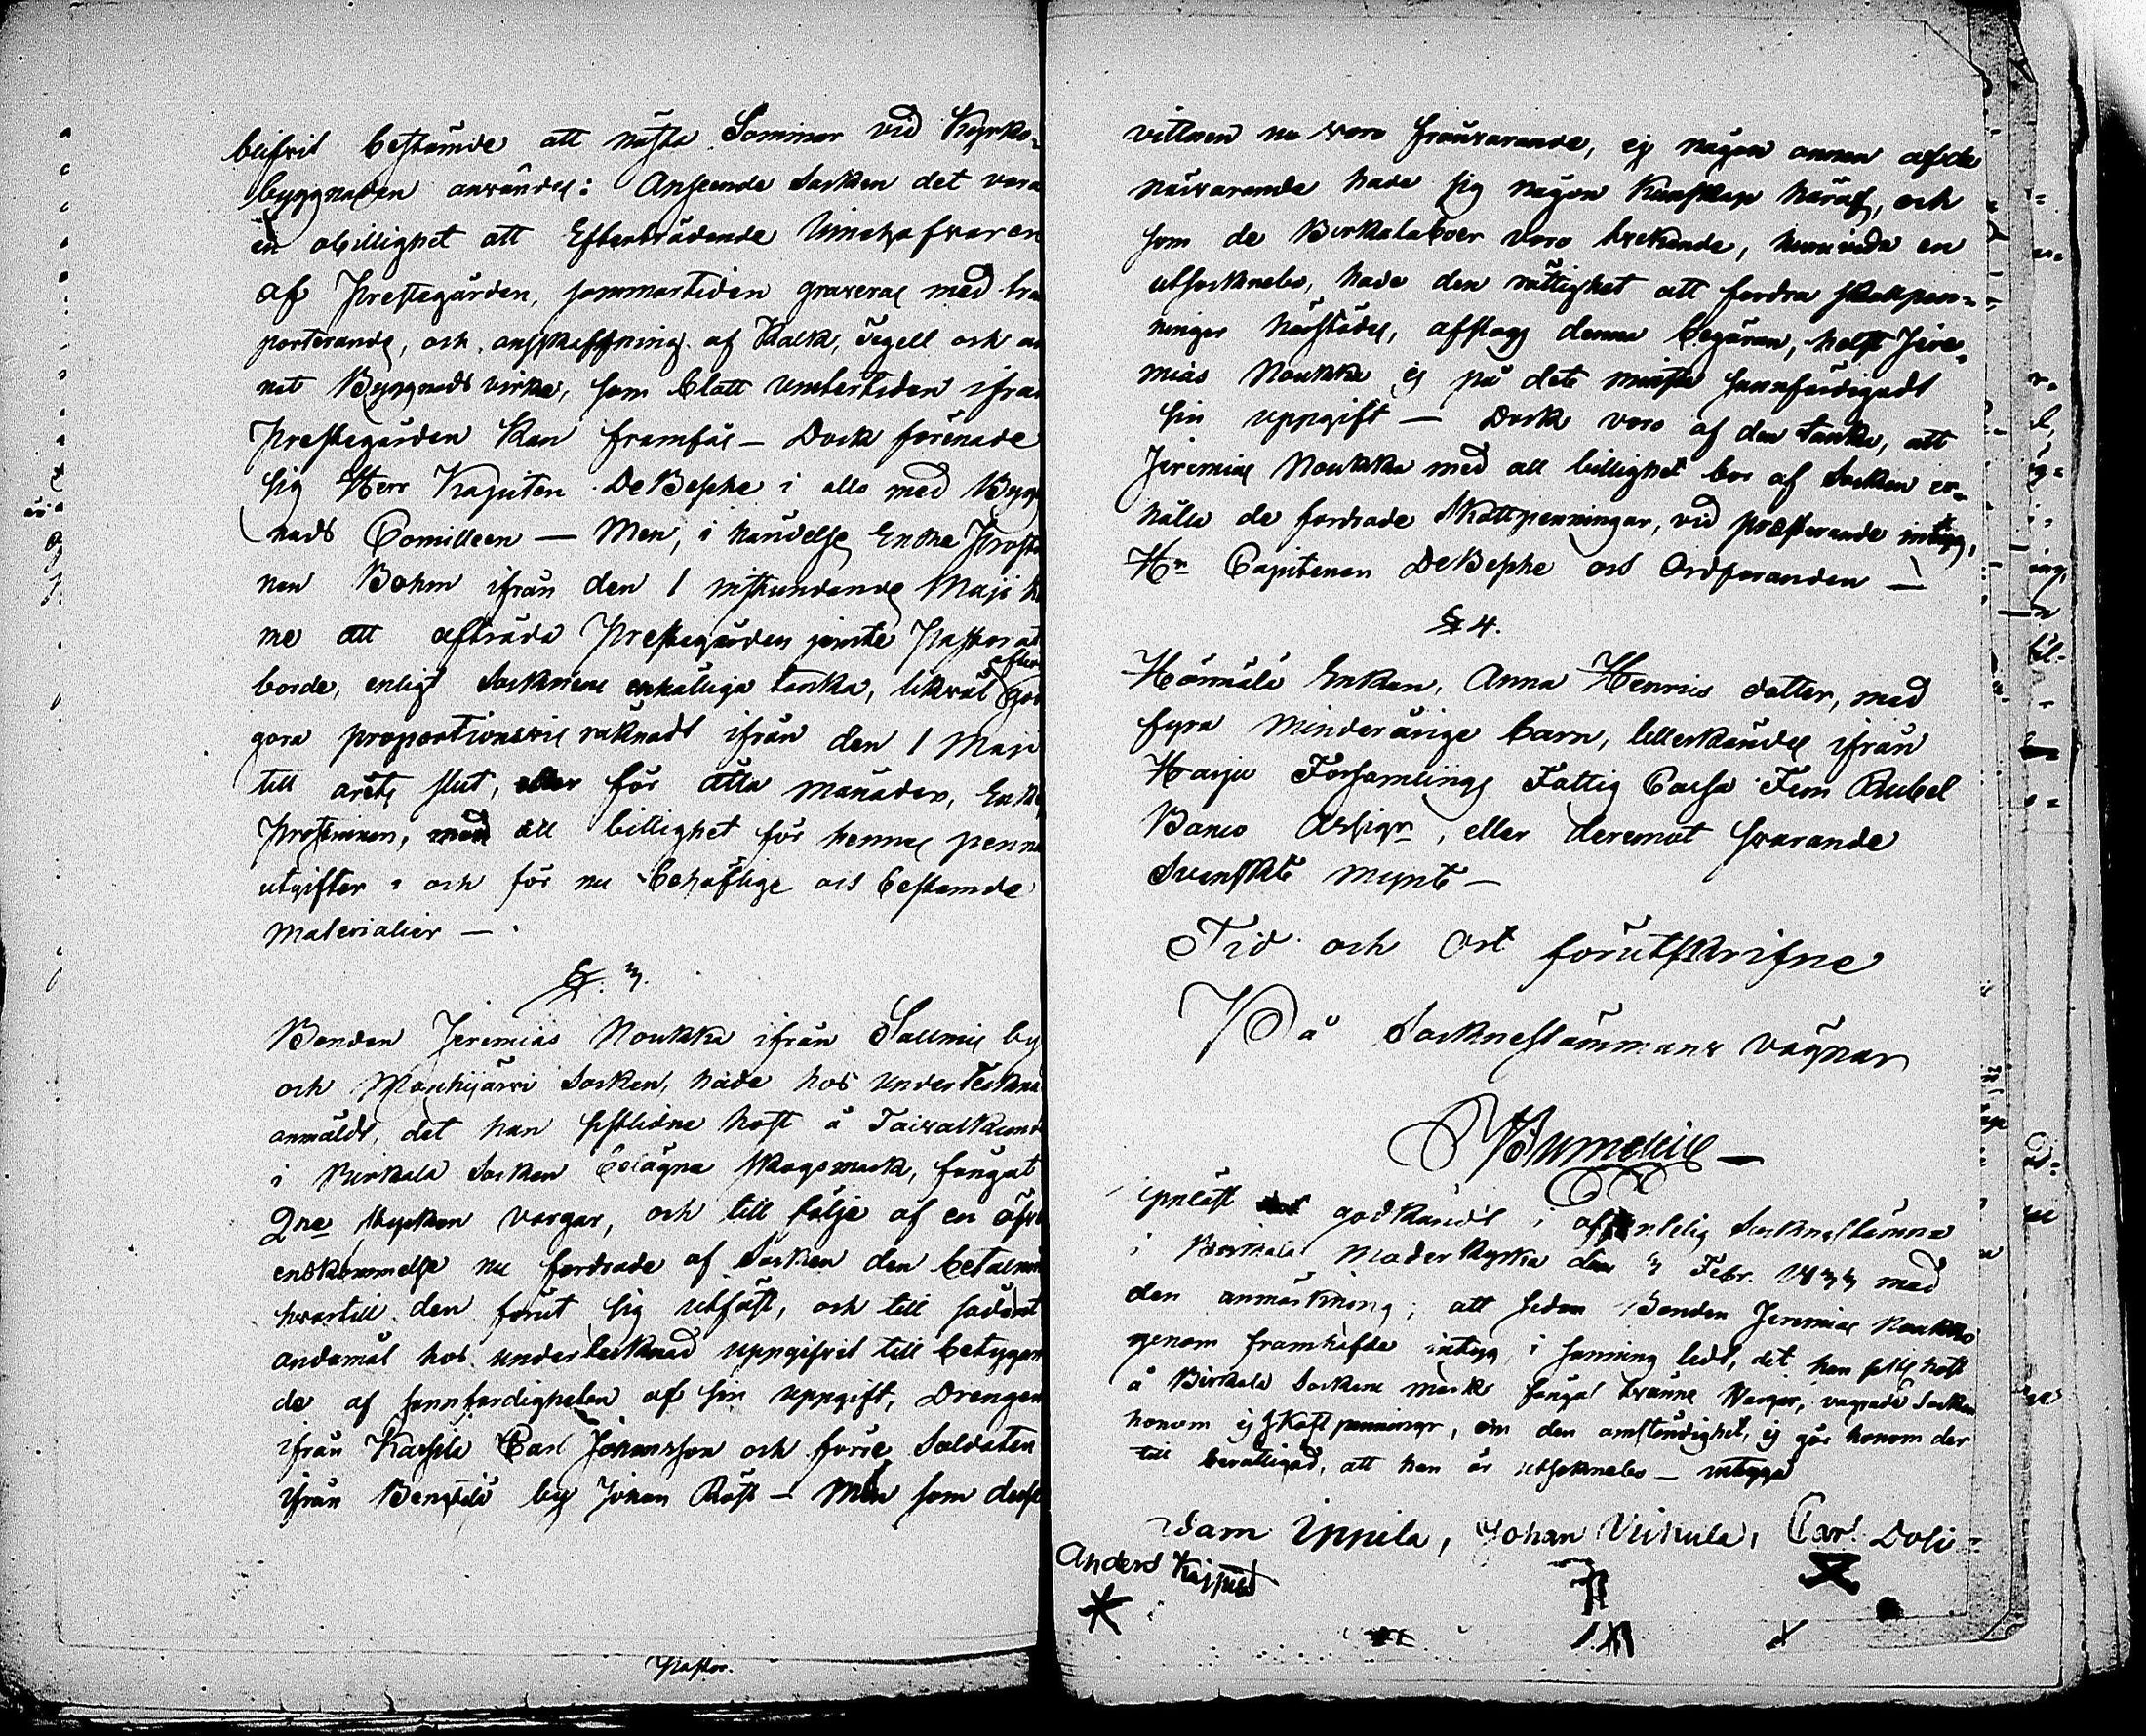 blifvit bestämde att nästa Sommar vid Kyrko-
byggnaden användes: Anseende Socken det vara
en obillighet att Efterträdande Innehafvaren
af Prestegården, sommartiden graveras med tra
porterande, och anskaffning af Kalk, Tegell och an
nat Byggnads virke, som blott vintertiden ifrån
Prestegården Kan framfås — Dock förenade
sig Herr Kapiten DeBesche i allo med Bygg
nads Comitteen — Men, i händelse Enke Prosti
nan Bohm ifrån den 1 nistkundande Maji
me att afträda Prestegården jemte Pastorat
borde, enligt Socknens enhälliga tanka, likväl efter
göra proportionsvis räknadt ifrån den 1 Maji
till årets slut, eller för åtta månader, Enke
Prostinnan, med all billighet för hennes penn
utgifter och för nu behöflige och bestämde
Materialier —
§. 3.
Bonden Jeremias Noukka ifrån Sallmis by
och Mouhijärvi Socken, hade hos underteckna
anmäldt, det han sistlidne höst å Taivalkunda
i Birkala Socken belägna skogsmark, fångat
2ne stycken Vargar, och till följe af en öfver
enskommelse nu fordrade af Socken den betalning
hvartill den förut sig utfäst, och till sådant
ändamål hos undertecknad uppgifvit till betygan
de af sannfärdigheten af sin uppgift, Drengen
ifrån Kaspila Carl Johansson och förre Soldaten
ifrån by Johan Röst — Men som desse
Pastor.
vittnen nu voro frånvarande, ej någon annan af de
närvarande hade sig någon Kunskap häraf, och
som de Birkalaboer voro tvekande, huruvida en
utsocknebo, hade den rättighet att fordra skottpen-
ningar härstädes, afslogs denna begäran, helst Jere-
mias Noukka ej på det minsta sannfärdigadt
sin uppgift — Dock voro af den tanka, att
Jeremias Noukka med all billighet bör af Socken er-
hålla de fordrade Skottpenningar, vid presterande intyg,
Hn Capitenen DeBesche och Ordföranden —
§ 4.
Enkan, Anna Henrics dotter, med
fyra minderårige barn, tillerkändes ifrån
Harju Församlings Fattig Cassa Fem Rubel
Banco Assign, eller deremot svarande
Svenskt mynt —
Tid och Ort förutskrifne
På Socknestämmans vägnar
uppläst godkändt i offentelig Socknestämma
i Birkala Moderkyrka den 3 Febr. 1833 med
den anmärkning, att sedan Bonden Jeremias Noukka
genom framhafde intyg i sanning ledt, det han sistl. höst
å Birkala Sockens mark fångat tvänne Vargar, vägrade Socken
honom ej Skottpenningar, om den omständighet, ej gör honom der
till berättigad, att han är utsocknebo — intyga
Adam Uppila, Johan Veikula, Carl
Anders